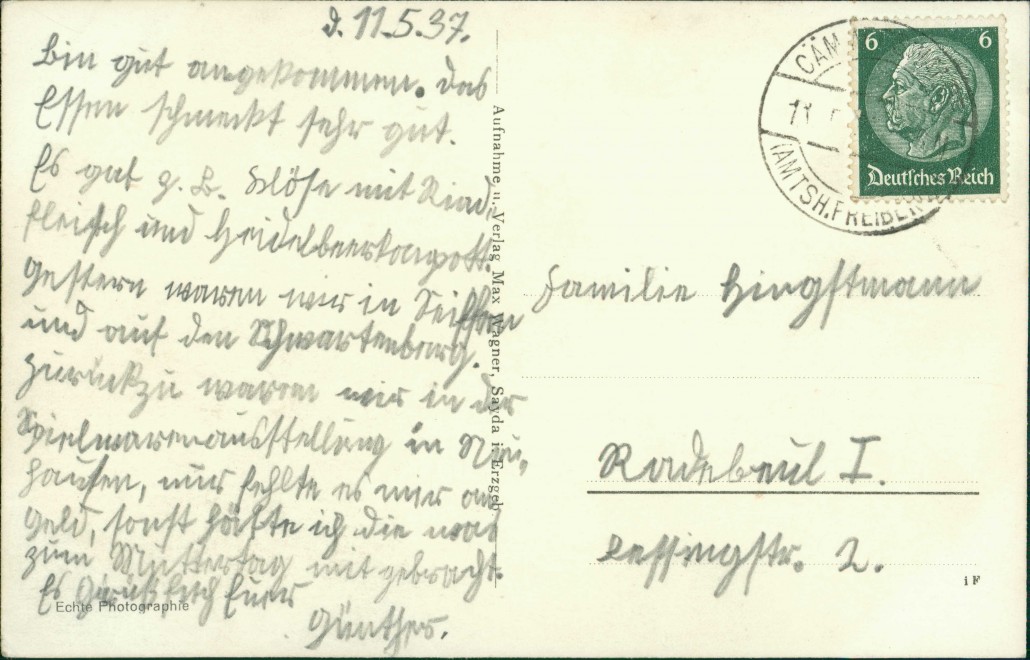 d. 11.5.37.
Bin gut angekommen. Das
Essen schmeckt sehr gut.
Es gab z. B. Klöse mit Rind,
fleisch und Heidelbeerkompott.
Gestern waren wir in Seiffen
und auf den Schwartenberg.
Zurückzu waren wir in der
Spielwarenausstellung in Neu,
hausen, nur fehlte es mir an
Geld, sonst hätte ich die was
zum Muttertag mit gebracht.
Es grüßt Euch Euer
Günther.
Echte Photographie
Aufnahme u. Verlag Max Wagner, Sayda i. Erzgeb.
CÄM
11
(AMTSH. FREIBERG
6 6
Deutsches Reich
Familie Hingstmann
Radebeul I.
Lessingstr. 2.
i F